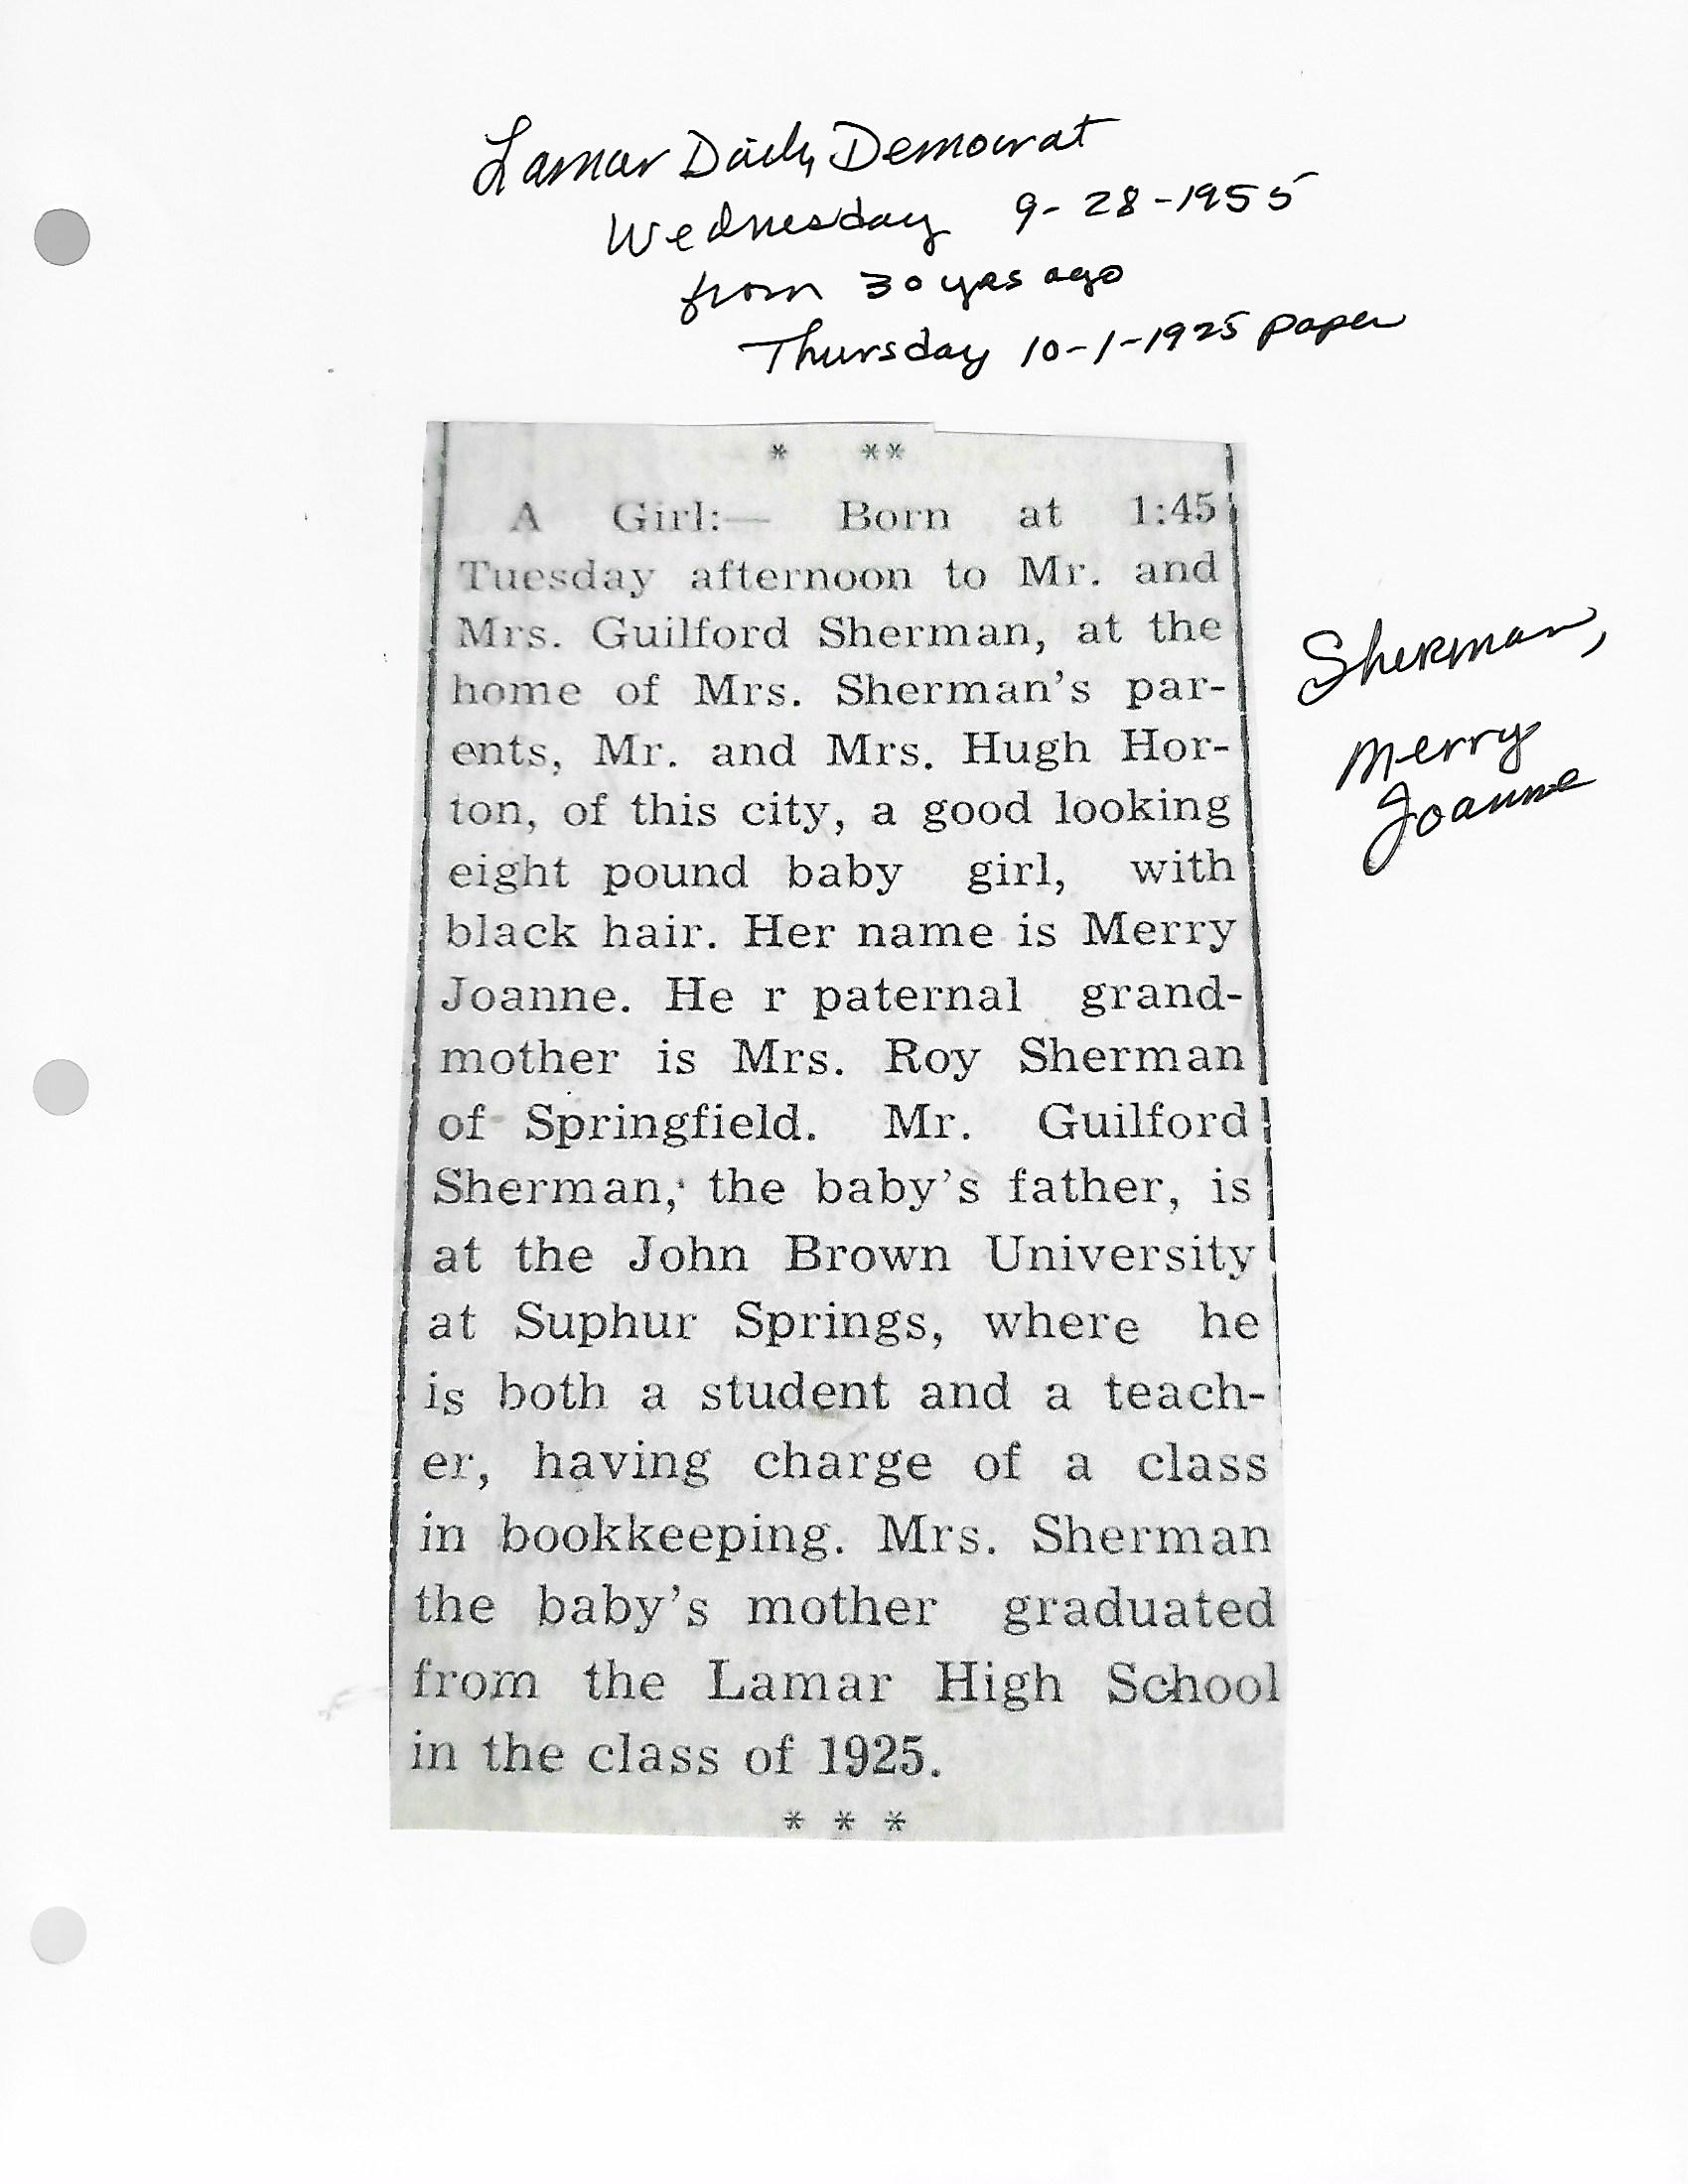 Lamar Daily Democrat
Wednesday 9-28-1955
from 30 yrs ago
Thursday 10-1-1925 paper
* **
A Girl:— Born at 1:45
Tuesday afternoon to Mr. and
Mrs. Guilford Sherman, at the
home of Mrs. Sherman's par-
ents, Mr. and Mrs. Hugh Hor-
ton, of this city, a good looking
eight pound baby girl, with
black hair. Her name is Merry
Joanne. He r paternal grand-
mother is Mrs. Roy Sherman
of Springfield. Mr. Guilford
Sherman, the baby's father, is
at the John Brown University
at Suphur Springs, where he
is both a student and a teach-
er, having charge of a class
in bookkeeping. Mrs. Sherman
the baby's mother graduated
from the Lamar High School
in the class of 1925.
* * *
Sherman,
Merry
Joanne